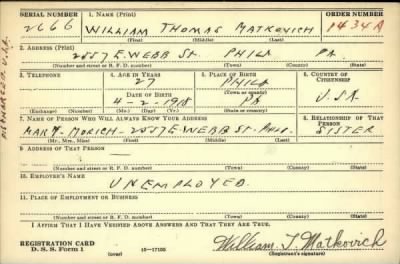 SERIAL NUMBER 1. Name (Print) ORDER NUMBER
2666 WILLIAM THOMAS MATKOVICH 1434A
(First) (Middle) (Last)
2. Address (Print)
2557 E. WEBB St. PHILA PA.
(Number and street or R. F. D. number) (Town) (County) (State)
3. Telephone 4. Age in Years 5. Place of Birth 6. Country of Citizenship
27 PHILA
Date of Birth (Town or county)
4-2-1918 PA U.S.A
(Exchange) (Number) (Mo.) (Day) (Yr.) (State or country)
7. Name of Person Who Will Always Know Your Address 8. Relationship of That Person
MARY - MORICH - 2557 E. WEBB St. PHIL. SISTER
(Mr., Mrs., Miss) (First) (Middle) (Last)
9. Address of That Person
(Number and street or R. F. D. number) (Town) (County) (State)
10. Employer's Name
UNEMPLOYED.
11. Place of Employment or Business
(Number and street or R. F. D. number) (Town) (County) (State)
I Affirm That I Have Verified Above Answers and That They Are True.
REGISTRATION CARD
D. S. S. Form 1 (over) 16-17105
William T Matkovich
(Registrant's signature)